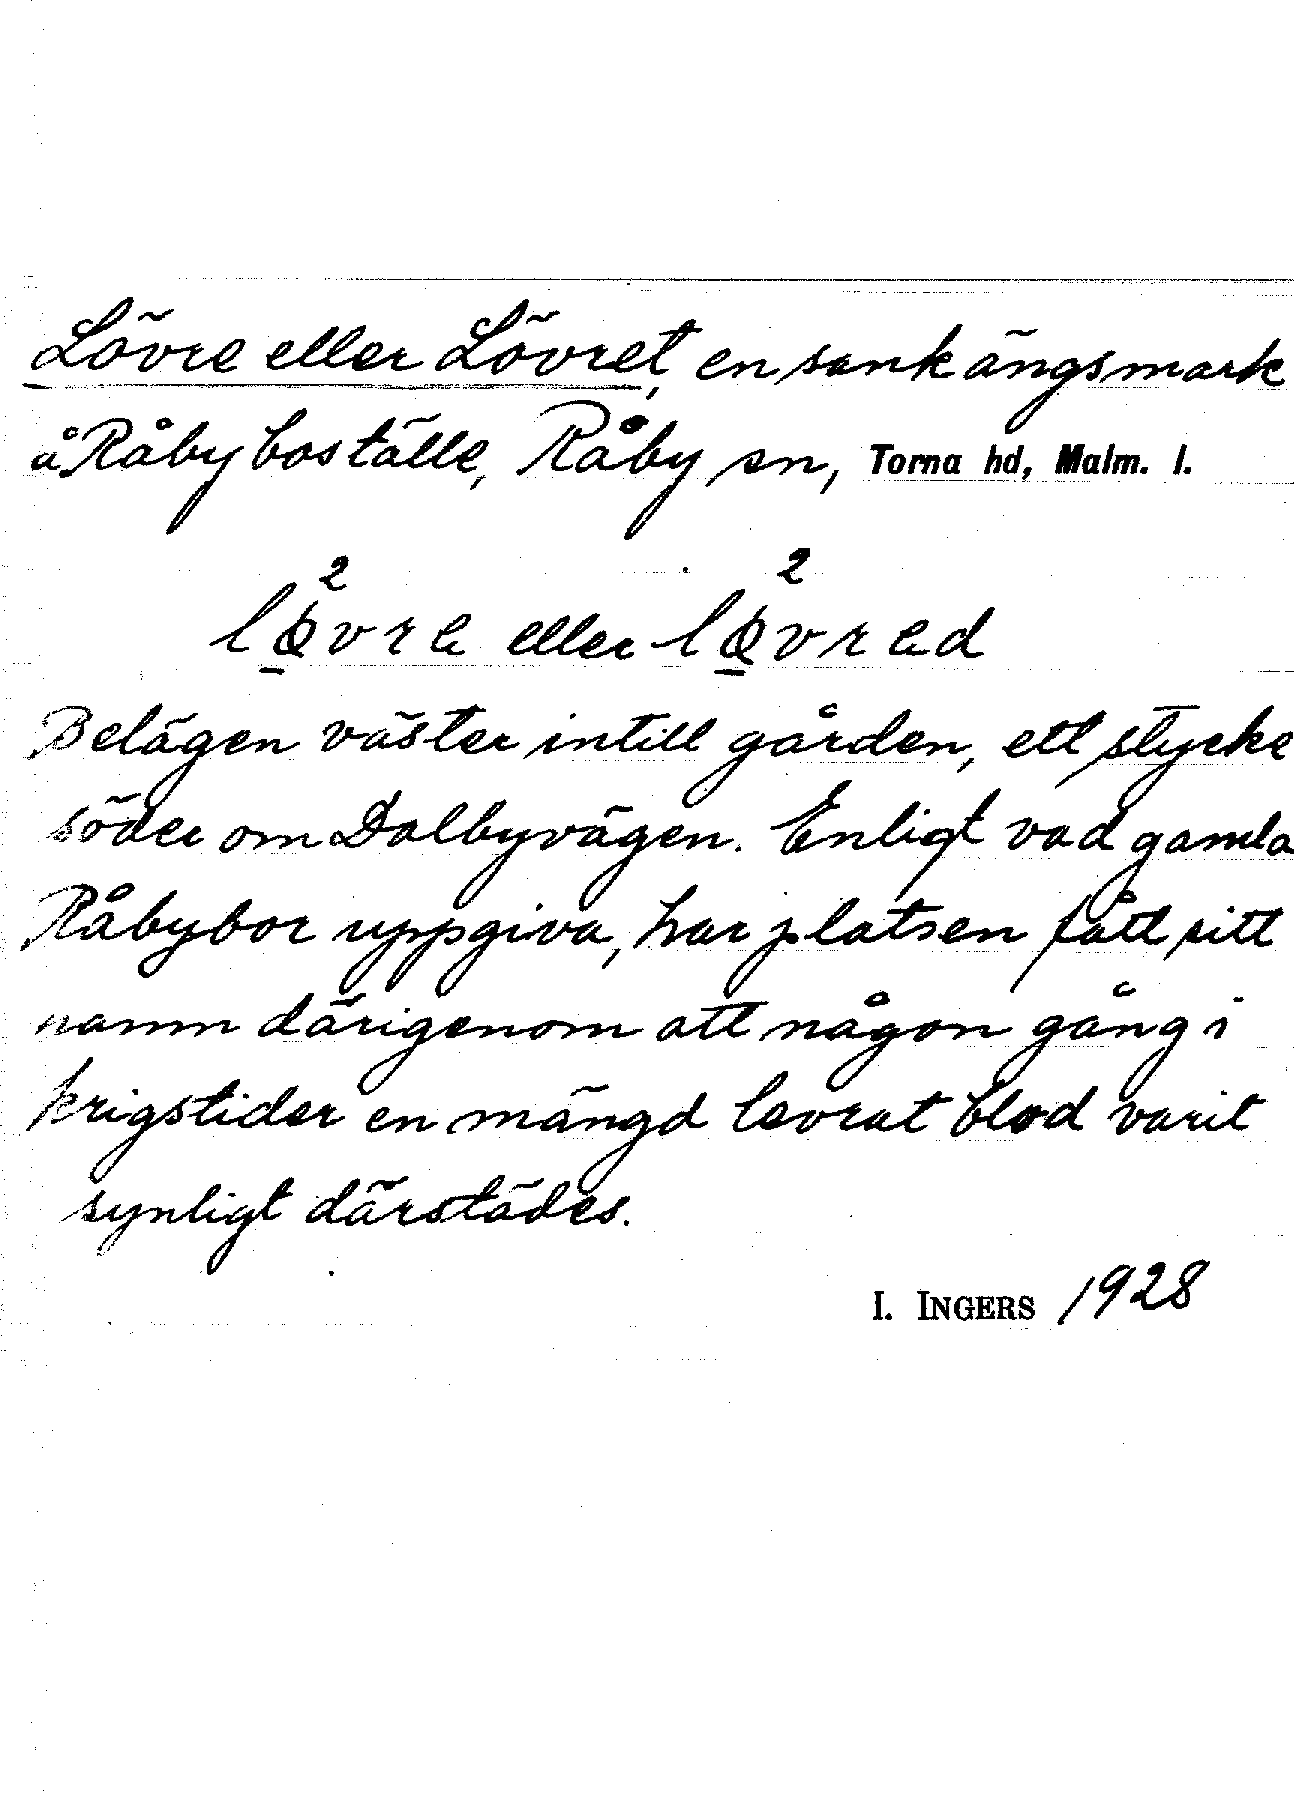 Lövre eller Lövret, en sank ängsmark
å Råby boställe, Råby sn, Torna hd, Malm. l.
2 2
lövre eller lövred
Belägen väster intill gården, ett stycke
söder om Dalbyvägen. Enligt vad gamla
Råbybor uppgiva, har platsen fått sitt
namn därigenom att någon gång i
krigstider en mängd levrat blod varit
synligt därstädes.
I. INGERS 1928